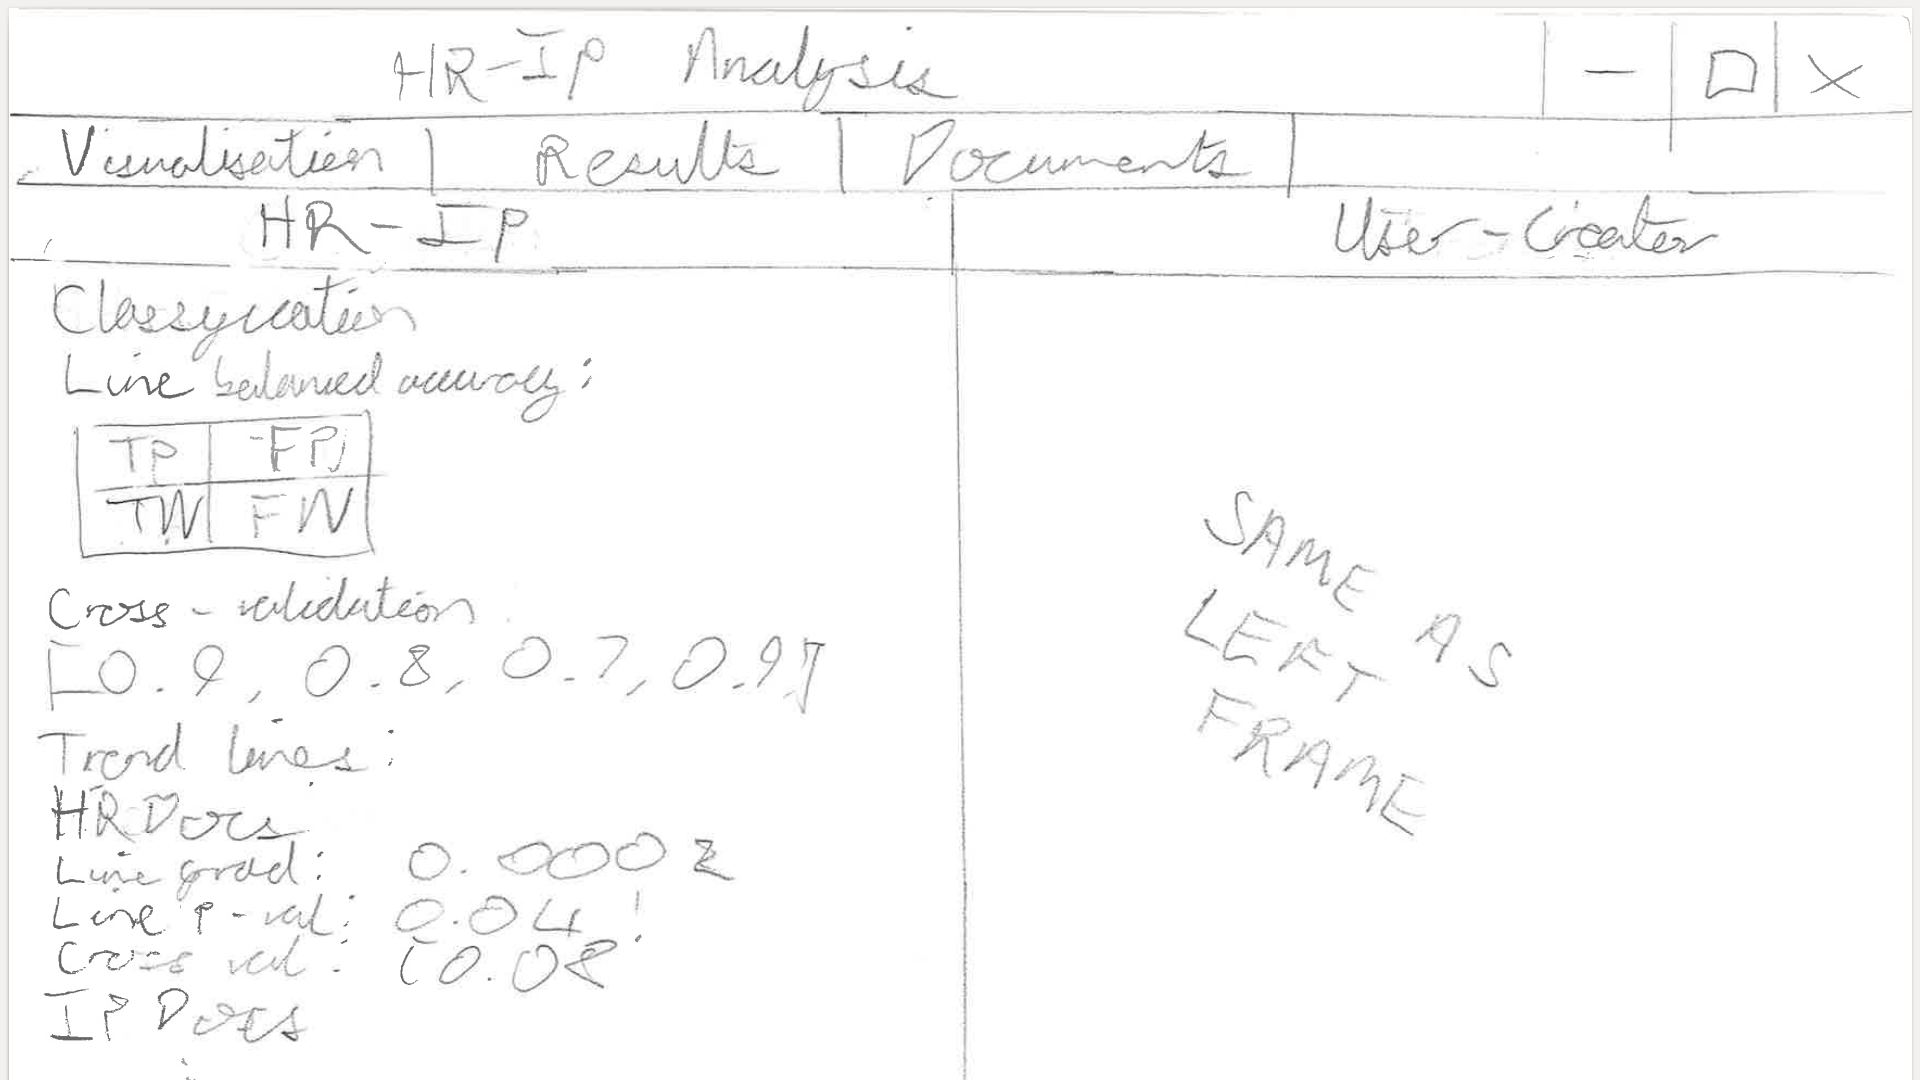 HR-IP Analysis
Visualisation Results Documents
HR-IP
User-Creator
Classification
Line balanced accuracy:
TP FP
TN FN
Cross-validation
[0.9, 0.8, 0.7, 0.9]
Trend lines:
HR Docs
Line grad: 0.0002
Line P-val: 0.04!
Cross val: [0.08
IP Docs
SAME AS
LEFT
FRAME